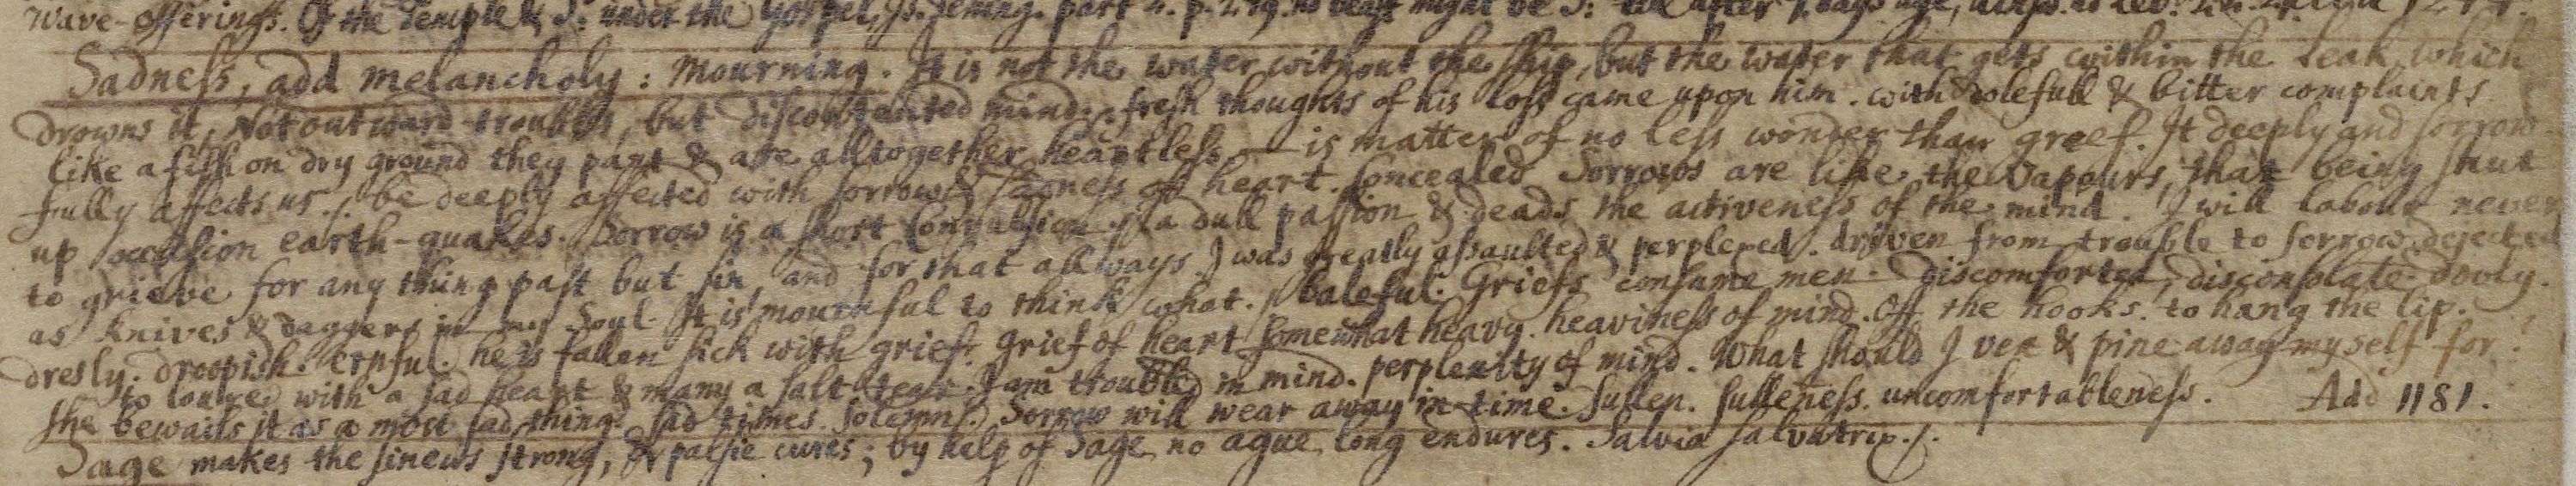 wave-offerings. Of the Temple & S: under the Gospel, part 2. p. 219. no beast might be S: till after 7. days age,
Sadness, add melancholy: mourning. It is not the water without the ship, but the water that gets within the leak which
drowns it, Not outward troubles, but discontented mind. fresh thoughts of his loss came upon him. with dolefull & bitter complaints
like a fish on dry ground they pant & are alltogether heartless — is matter of no less wonder than greef. It deeply and sorrow-
fully affects us ./. be deeply affected with sorrow & sadness of heart. Concealed Sorrows are like the Vapours, that being shut
up occasion earth-quakes. Sorrow is a short Convulsion ./. a dull passion & deads the activeness of the mind. I will labour never
to grieve for any thing past but sin, and for that allways. I was greatly assaulted & perplexed. driven from trouble to sorrow. dejected
as knives & daggers in my Soul. It is mournful to think what. baleful. Griefs consume men. discomforted, disconsolate. dowly.
dresly. droopish. erpful. he is fallen sick with grief. grief of heart somewhat heavy. heaviness of mind. Off the hooks. to hang the lip.
to loured with a sad heart & many a salt tear. I am troubled in mind. perplexity of mind. What should I vex & pine away myself for?
She bewails it as a most sad thing. sad times. solemn. Sorrow will wear away in time. sullen. sulleness. uncomfortableness. Add 1181.
Sage makes the sinews strong, & palsie cures; by help of Sage no ague long endures. Salvia salvatrix ./.